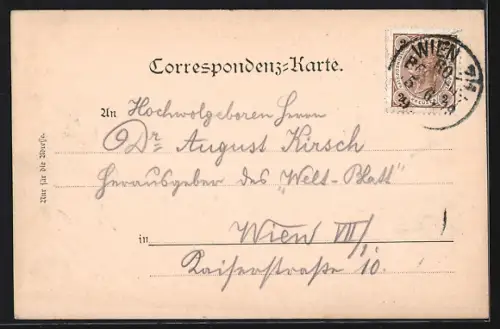 WIEN
Correspondenz-Karte.
An Hochwolgeboren Herrn
Dr August Kirsch
Herausgeber des "Welt-Blatt"
in Wien VII/1
Kaiserstraße 10.
Nur für die Adresse.